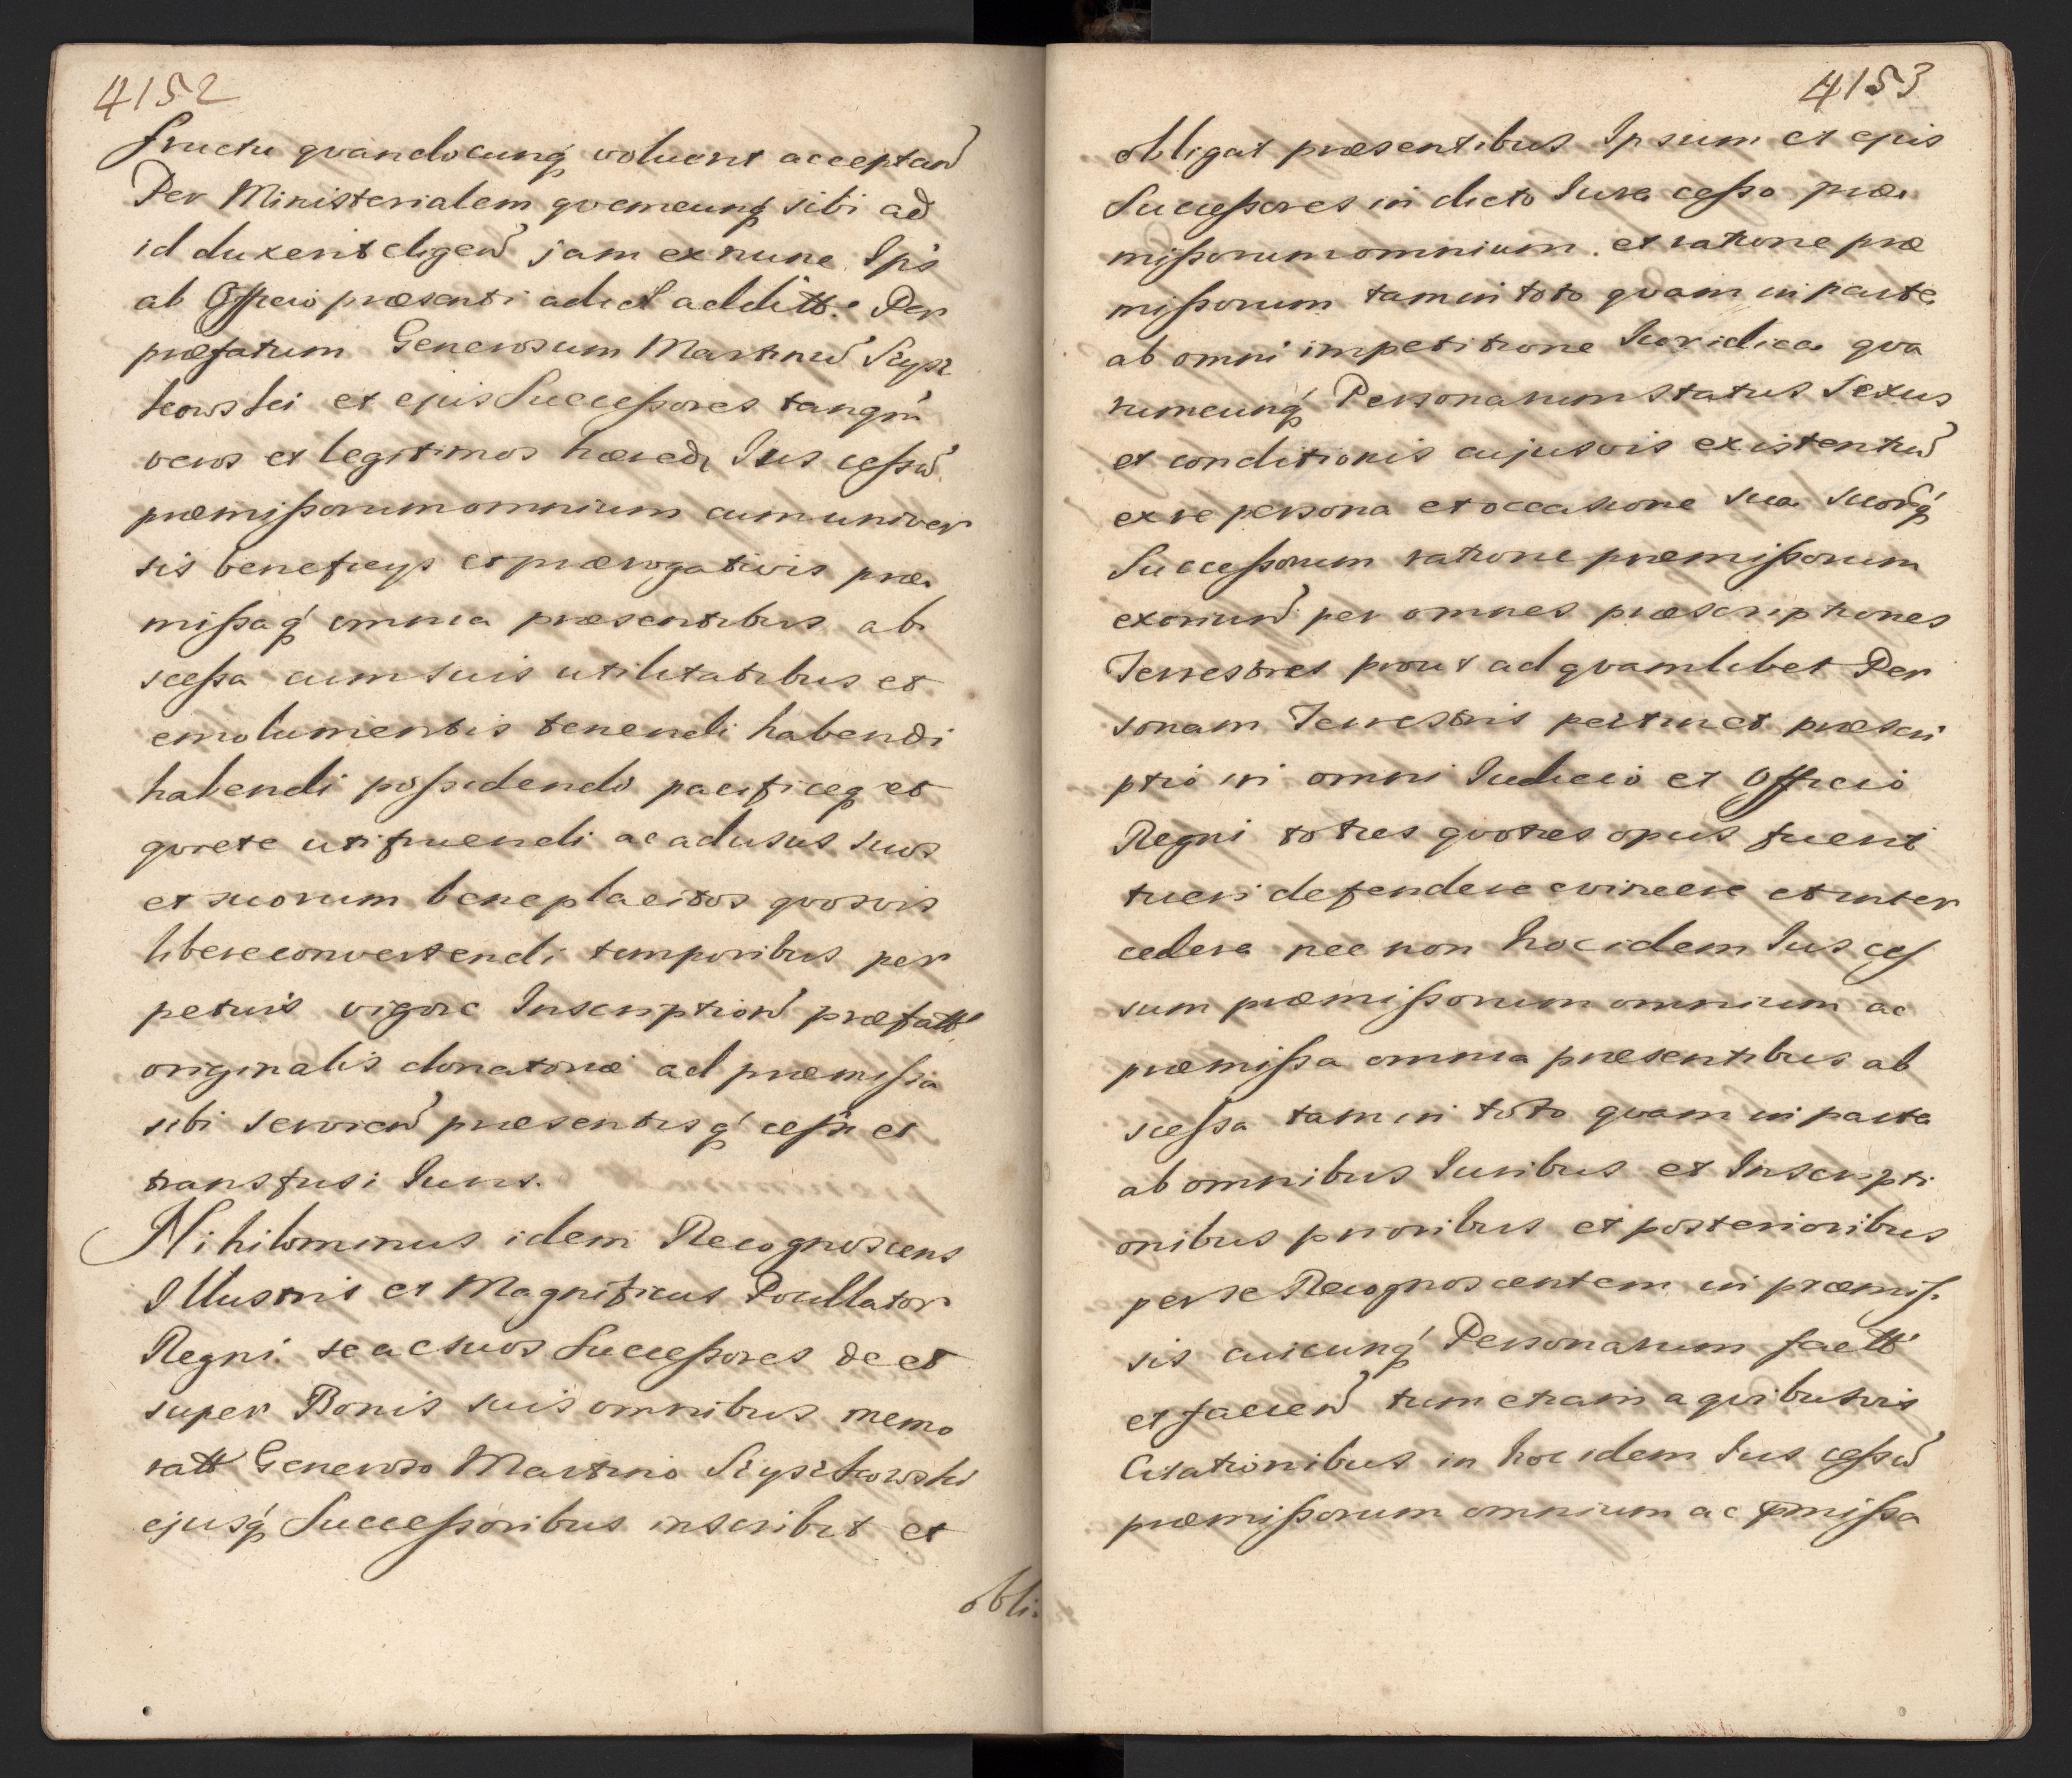 4152
fructu qvandocunq́ voluerit acceptan̄
Per Ministerialem qvemcunq́ sibi ad
id duxerit eligen̄ jam ex nunc Ips
ab Officio præsenti ad id additt. Per
præfatum Generosum Martinū Scysz
kowski et ejus Successores tanqm̄
veros et legitimos hæred Jus cessū
præmissorum omnium cum univer
sis beneficys et prærogativis præ
missaq́ omnia præsentibus ab
scessa cum suis utilitatibus et
emolumentis tenendi habendi
habendi possidendi pacificeq́ et
qviete utifruendi ac ad usus suos
et suorum beneplacitos qvosvis
libere convertendi temporibus per
petuis vigore Inscription̄ præfatt
originalis donatoriæ ad præmissa
sibi servien̄ præsentisq́ cessi et
transfusi Iuris.
Nihilominus idem Recognoscens
Illustris et Magnificus Pocillator
Regni se ac suos Successores de et
super Bonis suis omnibus memo
ratt Generoso Martino Scyszkowski
ejusq́ Successoribus inscribit et
obli.
4153
obligat præsentibus Ipsum et ejus
Successores in dicto Iure cesso præ
missorum omnium et ratione præ
missorum tam in toto qvam in parte
ab omni impetitione Iuridica qva
rumcunq́ Personarum status Sexus
et conditionis cujusvis existentiū
ex re persona et occasione sua suorq́
Successorum ratione præmissorum
exoriun̄ per omnes præscriptiones
Terrestres prout ad qvamlibet Per
sonam Terrestris pertinet præscri
ptio in omni Iudicio et Officio
Regni toties qvoties opus fuerit
tueri defendere evincere et inter
cedere nec non hoc idem Ius ces
sum præmissorum omnium ac
præmissa omnia præsentibus ab
scessa tam in toto qvam in parte
ab omnibus Iuribus et Inscripti
onibus prioribus et posterioribus
per se Recognoscentem in præmis
sis cuicunq́ Personarum factt
et facien̄ tum etiam a qvibusvis
Citationibus in hoc idem Ius cessū
præmissorum omnium ac p̄missa